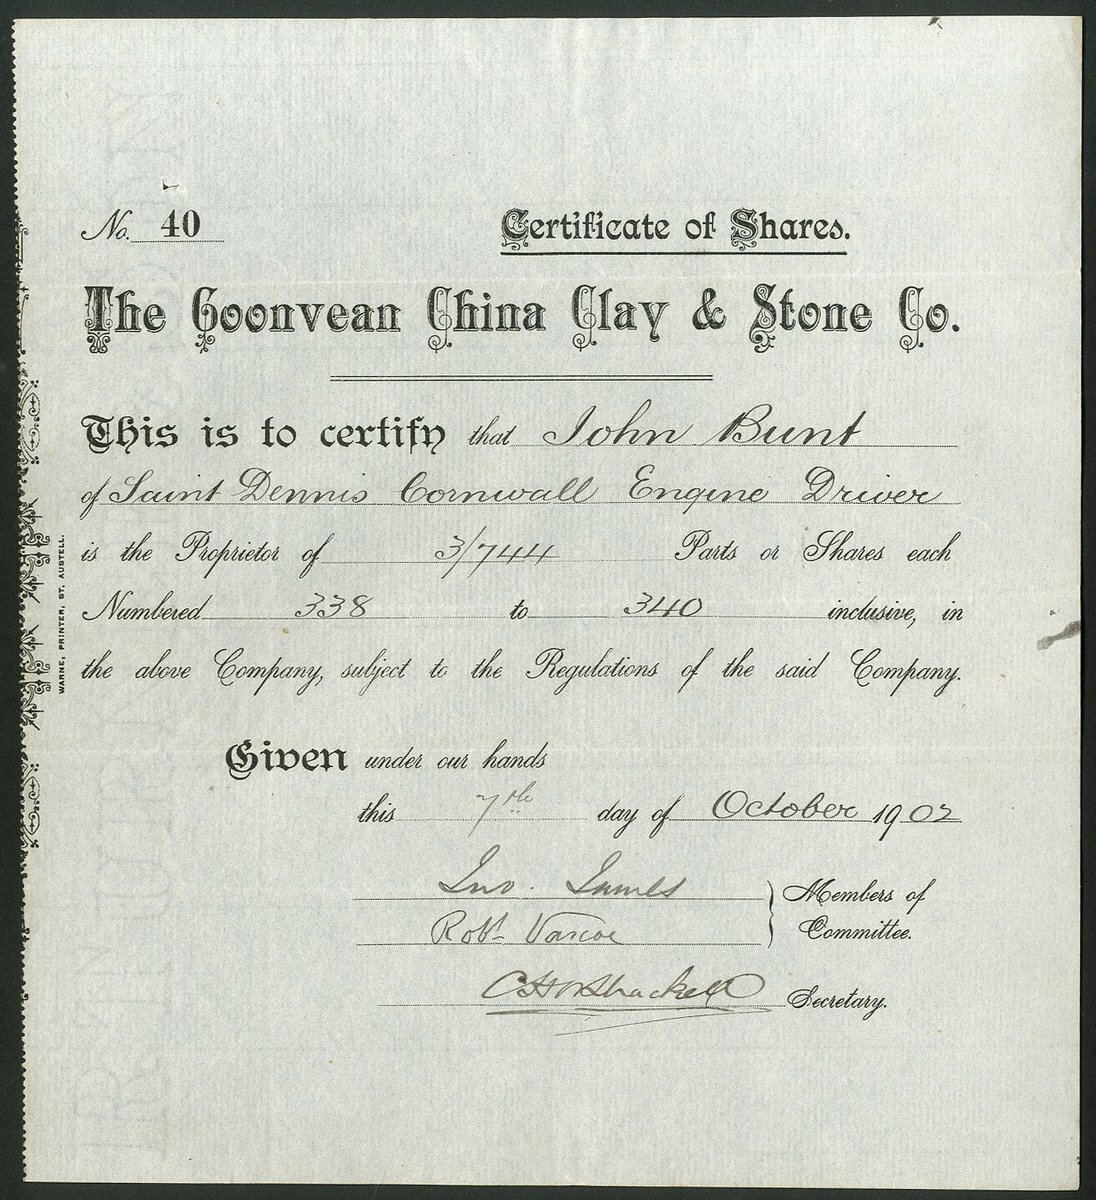 No. 40
Certificate of Shares.
The Goonvean China Clay & Stone Co.
This is to certify that John Bunt
of Saint Dennis Cornwall Engine Driver
is the Proprietor of 3/744 Parts or Shares each
Numbered 338 to 340 inclusive, in
the above Company, subject to the Regulations of the said Company.
Given under our hands
this 7th day of October 1902
Jno. James
Robt Varcoe
Members of
Committee.
Shackell Secretary.
WARNE, PRINTER, ST. AUSTELL.